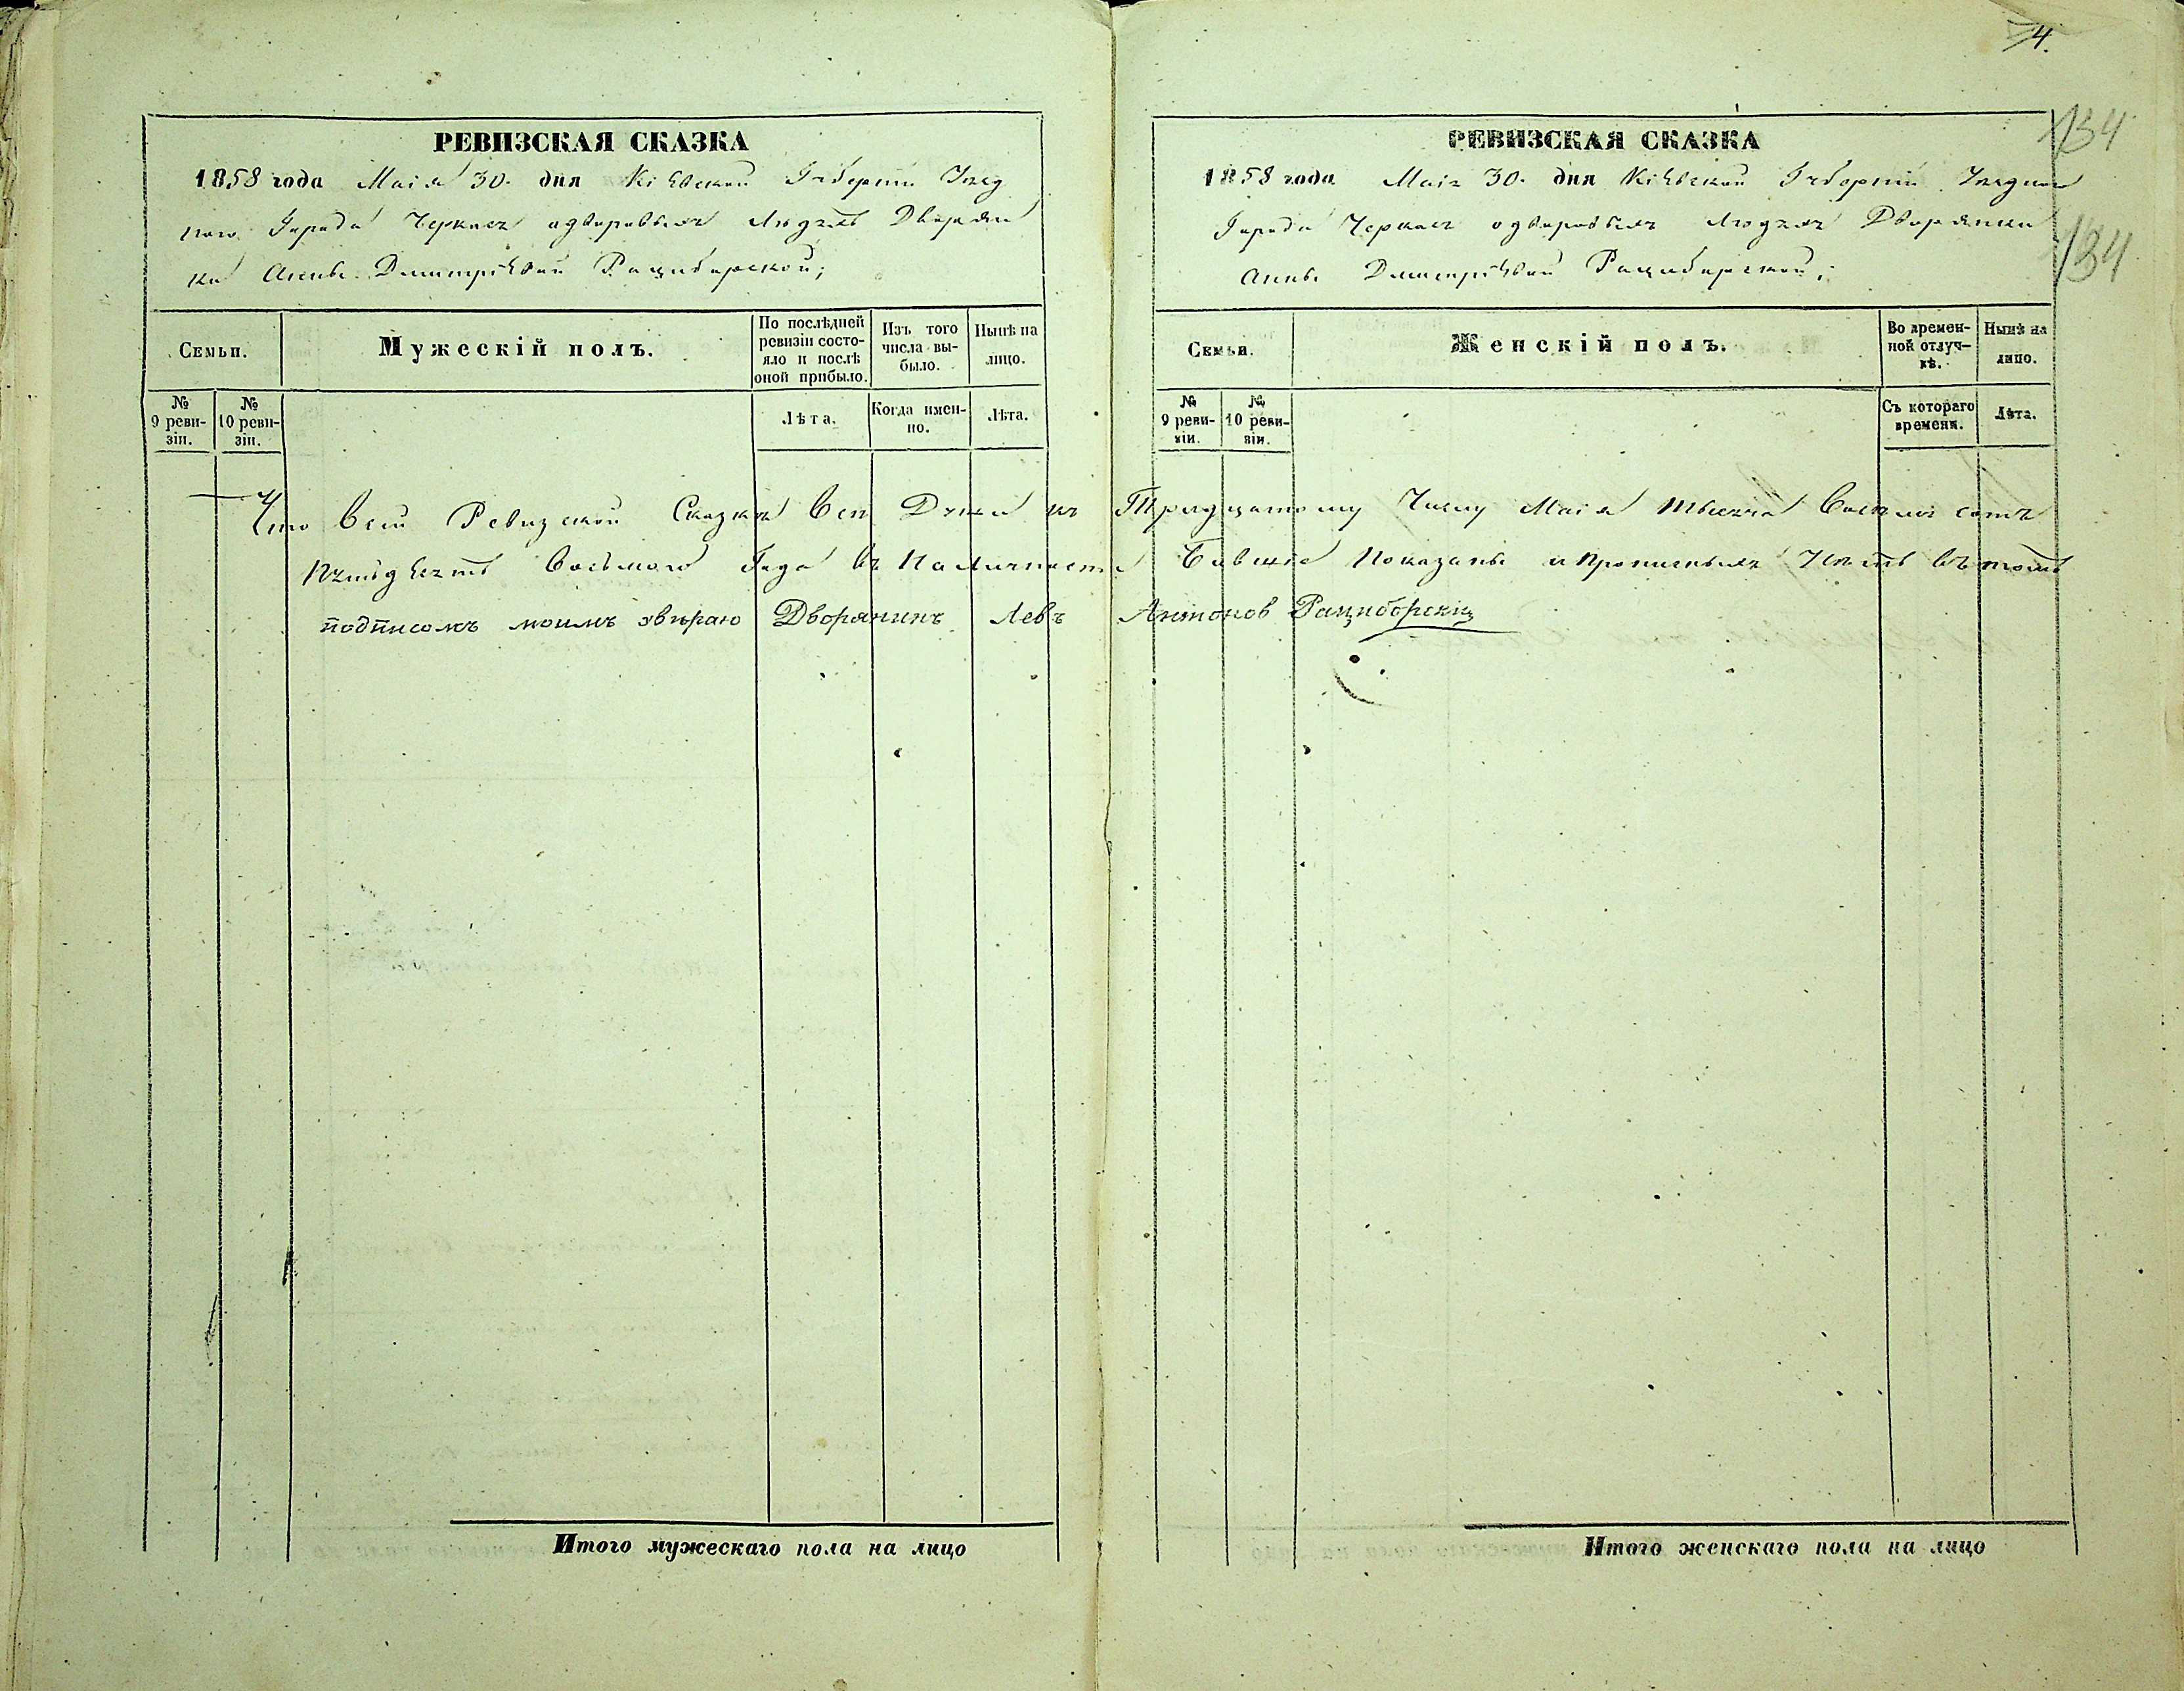 4.
134
134
РЕВИЗСКАЯ СКАЗКА
1858 года Маія 30. дня Кіевской Губерніи Уезд
ного Города Черкас одворовых Людях Дворян
ки Анны Дмитріевой Рациборской;
Семьи.
Мужескій полъ.
По послѣдней ревизіи состояло и послѣ оной прибыло.
Изъ того числа выбыло.
Нынѣ на лицо.
№ 9 ревизіи.
№ 10 ревизіи.
Лѣта.
Когда именно.
Лѣта.
РЕВИЗСКАЯ СКАЗКА
1858 года Маія 30. дня Кіевской Губерніи Уездного
Города Черкас одворовых Людях Дворянки
Анны Дмитріевой Рациборской;
Семьи.
Женскій полъ.
Во временной отлучкѣ.
Нынѣ на лицо.
№ 9 ревизіи.
№ 10 ревизіи.
Съ котораго времени.
Лѣта.
Что всей Ревизской Сказки все Души къ Тридцатому Числу Маія тысяча Восемь сотъ
пятьдесятъ восьмого Года въ Наличности Бывшіе Показаны и прописныхъ Нетъ въ томъ
подписомъ моимъ звѣраю Дворянинъ Левъ Антонов Рациборскій
Итого мужескаго пола на лицо
Итого женскаго пола на лицо